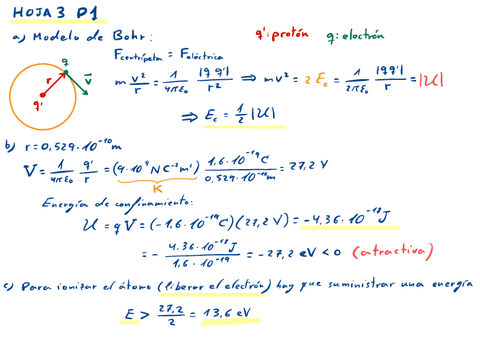 HOJA 3 P1
a) Modelo de Bohr: q': protón q: electrón
F centrípeta = F eléctrica
m v²/r = 1/4πε₀ |q q'|/r² ⇒ mv² = 2 Ec = 1/2πε₀ |qq'|/r = |U|
⇒ Ec = 1/2 |U|
q
r
v⃗
q'
b) r = 0,529·10⁻¹⁰ m
V = 1/4πε₀ q'/r = (9·10⁹ N C⁻² m²) 1,6·10⁻¹⁹C/0,529·10⁻¹⁰m = 27,2 V
K
Energía de confinamiento:
U = qV = (-1,6·10⁻¹⁹C)(27,2 V) = -4,36·10⁻¹⁸J
= - 4,36·10⁻¹⁸J/1,6·10⁻¹⁹ = -27,2 eV < 0 (atractiva)
c) Para ionizar el átomo (liberar el electrón) hay que suministrar una energía
E > 27,2/2 = 13,6 eV